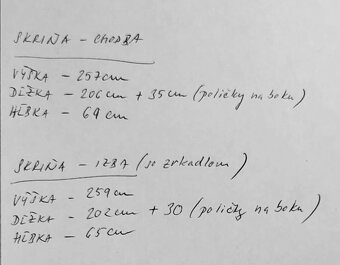 SKRIŇA - CHODBA
VÝŠKA - 257cm
DĹŽKA - 206cm + 35cm (poličky na boku)
HĹBKA - 64cm
SKRIŇA - IZBA (so zrkadlom)
VÝŠKA - 259cm
DĹŽKA - 202cm + 30 (poličky na boku)
HĹBKA - 65cm